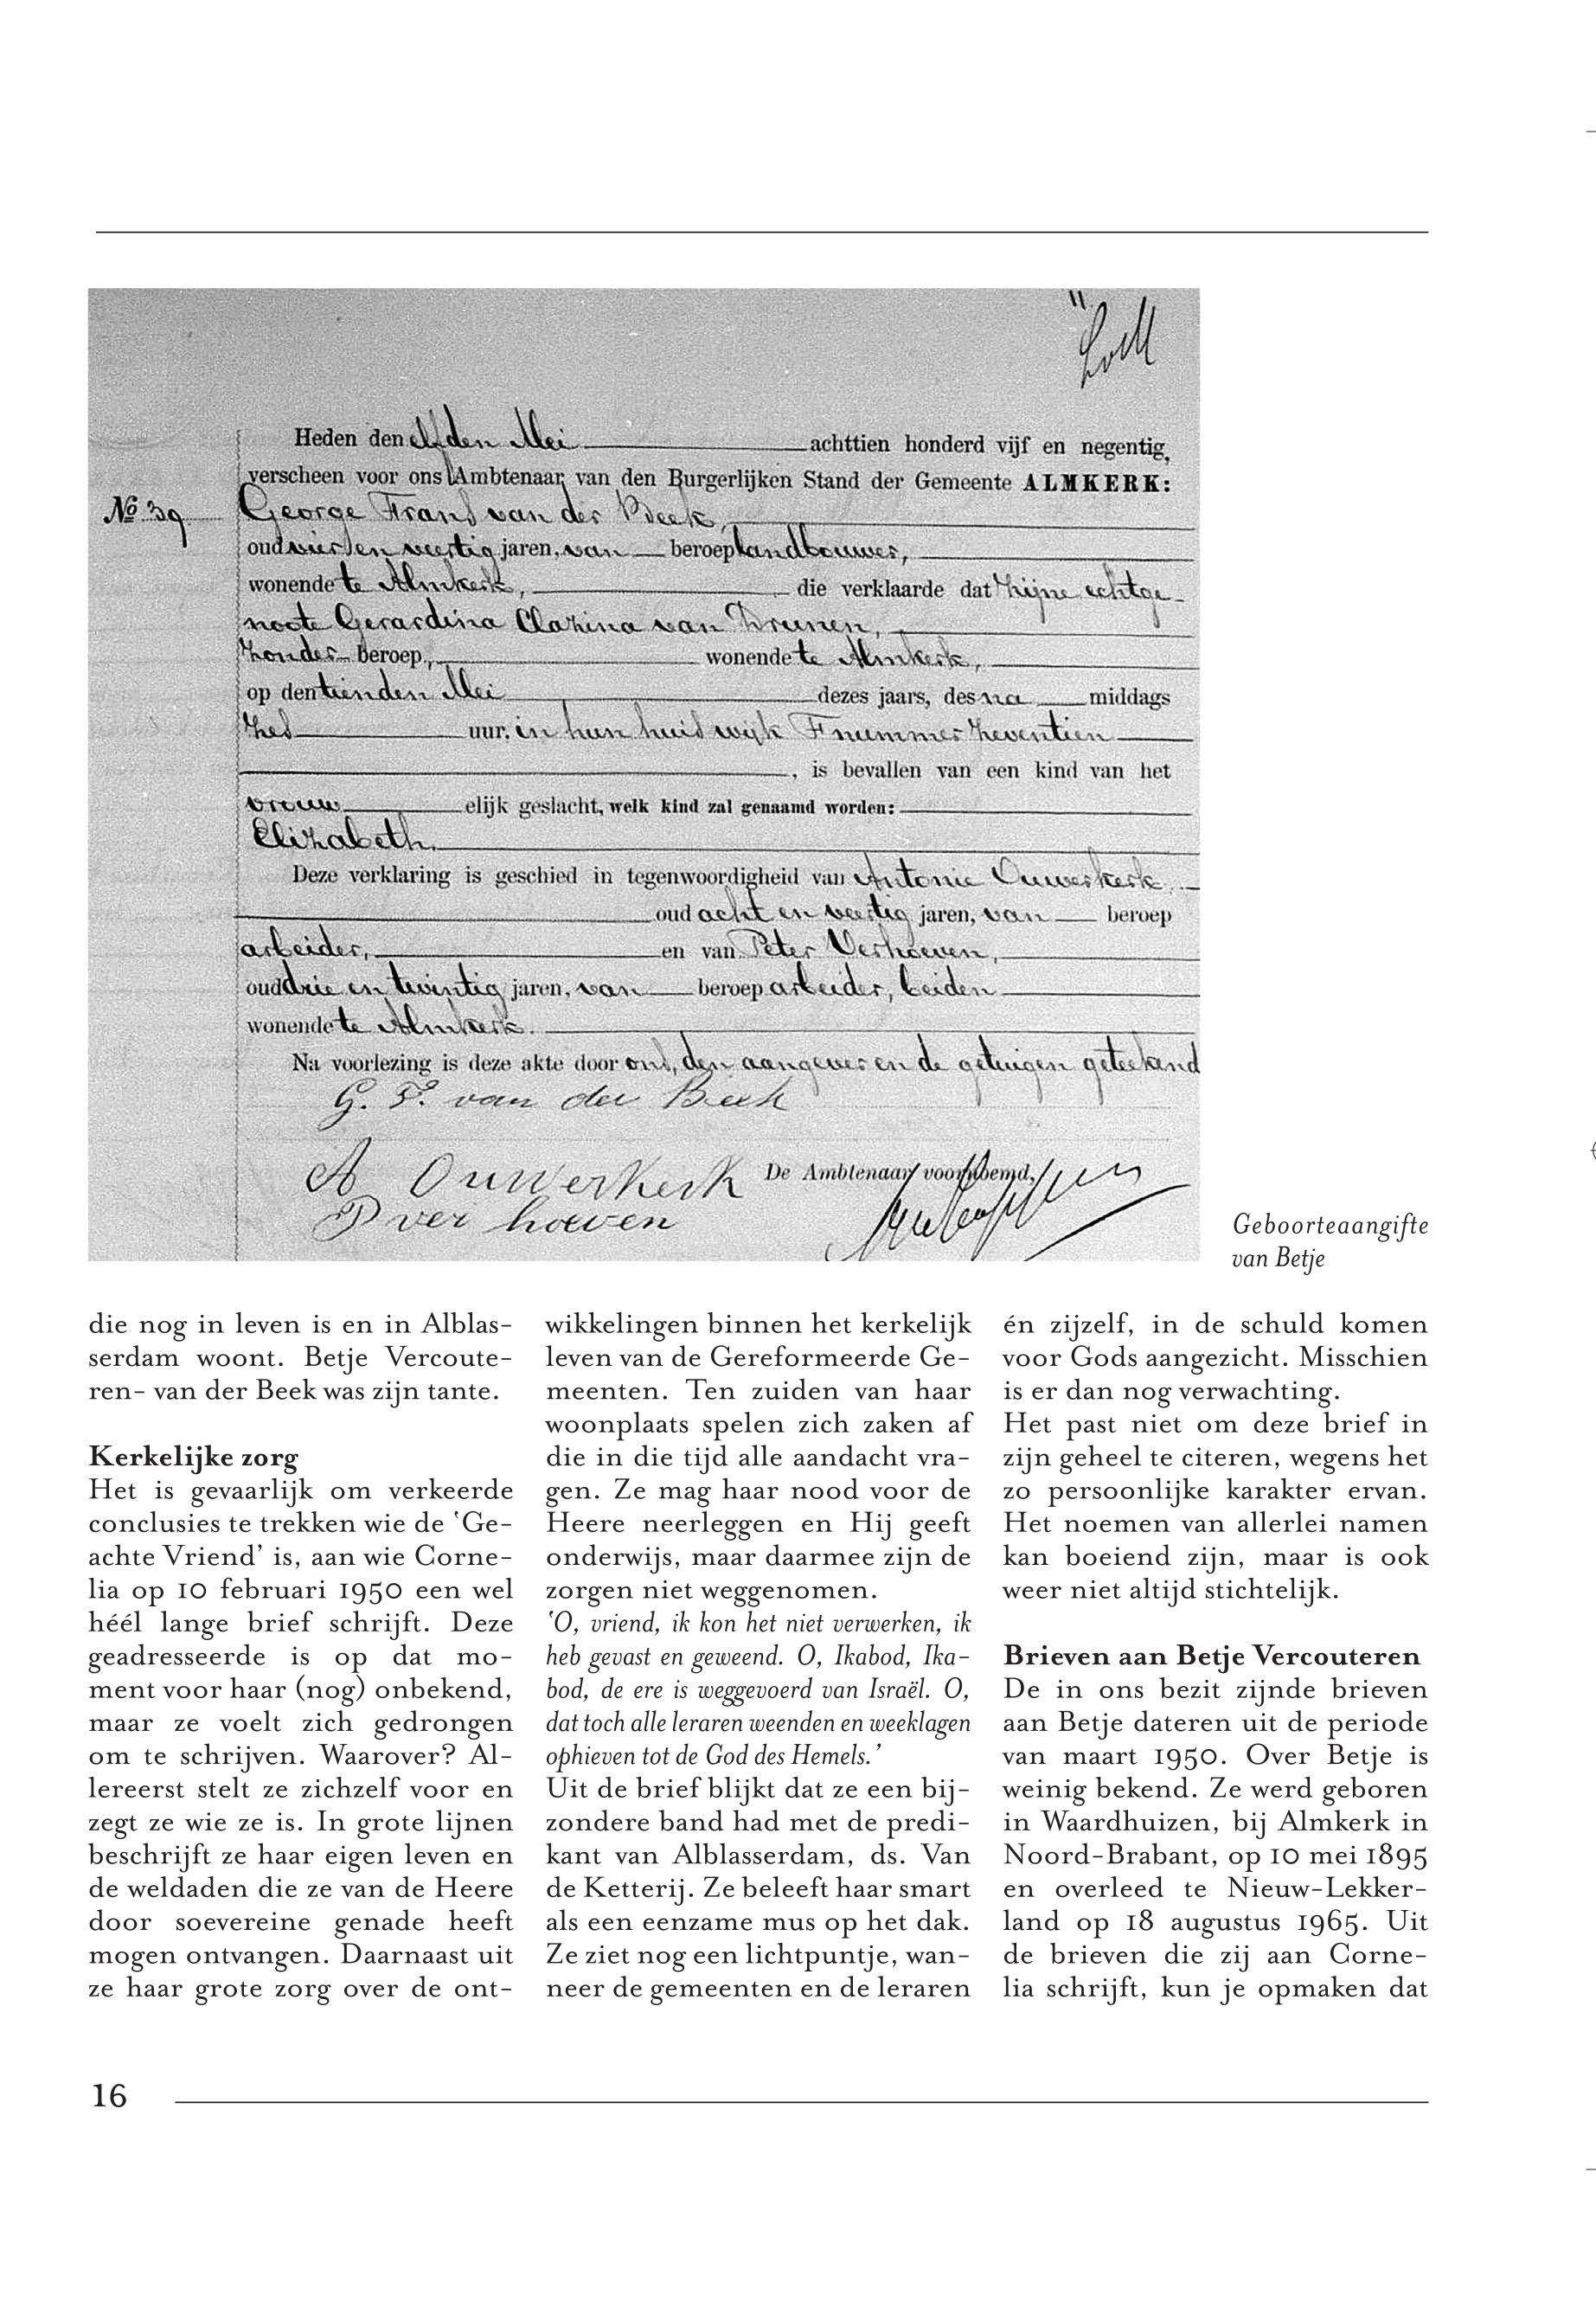 Heden den elfden Mei achttien honderd vijf en negentig,
verscheen voor ons Ambtenaar van den Burgerlijken Stand der Gemeente ALMKERK:
No 39
George Frans van der Beek,
oud vier en veertig jaren, van beroep landbouwer,
wonende te Almkerk, die verklaarde dat zijne echtge-
noote Gerardina Clazina van Drunen,
zonder beroep, wonende te Almkerk,
op den tienden Mei dezes jaars, des na middags
zes uur, in hun huis wijk F nummer zeventien
, is bevallen van een kind van het
vrouw elijk geslacht, welk kind zal genaamd worden:
Elizabeth.
Deze verklaring is geschied in tegenwoordigheid van Antonie Ouwerkerk,
oud acht en veertig jaren, van beroep
arbeider, en van Peter Verhoeven,
oud drie en twintig jaren, van beroep arbeider, beiden
wonende te Almkerk.
Na voorlezing is deze akte door ons, den aangever en de getuigen geteekend
G. F. van der Beek
A Ouwerkerk De Ambtenaar voornoemd,
P ver hoeven
Geboorteaangifte
van Betje
die nog in leven is en in Alblas-
serdam woont. Betje Vercoute-
ren- van der Beek was zijn tante.
Kerkelijke zorg
Het is gevaarlijk om verkeerde
conclusies te trekken wie de ‛Ge-
achte Vriend’ is, aan wie Corne-
lia op 10 februari 1950 een wel
héél lange brief schrijft. Deze
geadresseerde is op dat mo-
ment voor haar (nog) onbekend,
maar ze voelt zich gedrongen
om te schrijven. Waarover? Al-
lereerst stelt ze zichzelf voor en
zegt ze wie ze is. In grote lijnen
beschrijft ze haar eigen leven en
de weldaden die ze van de Heere
door soevereine genade heeft
mogen ontvangen. Daarnaast uit
ze haar grote zorg over de ont-
wikkelingen binnen het kerkelijk
leven van de Gereformeerde Ge-
meenten. Ten zuiden van haar
woonplaats spelen zich zaken af
die in die tijd alle aandacht vra-
gen. Ze mag haar nood voor de
Heere neerleggen en Hij geeft
onderwijs, maar daarmee zijn de
zorgen niet weggenomen.
‛O, vriend, ik kon het niet verwerken, ik
heb gevast en geweend. O, Ikabod, Ika-
bod, de ere is weggevoerd van Israël. O,
dat toch alle leraren weenden en weeklagen
ophieven tot de God des Hemels.’
Uit de brief blijkt dat ze een bij-
zondere band had met de predi-
kant van Alblasserdam, ds. Van
de Ketterij. Ze beleeft haar smart
als een eenzame mus op het dak.
Ze ziet nog een lichtpuntje, wan-
neer de gemeenten en de leraren
én zijzelf, in de schuld komen
voor Gods aangezicht. Misschien
is er dan nog verwachting.
Het past niet om deze brief in
zijn geheel te citeren, wegens het
zo persoonlijke karakter ervan.
Het noemen van allerlei namen
kan boeiend zijn, maar is ook
weer niet altijd stichtelijk.
Brieven aan Betje Vercouteren
De in ons bezit zijnde brieven
aan Betje dateren uit de periode
van maart 1950. Over Betje is
weinig bekend. Ze werd geboren
in Waardhuizen, bij Almkerk in
Noord-Brabant, op 10 mei 1895
en overleed te Nieuw-Lekker-
land op 18 augustus 1965. Uit
de brieven die zij aan Corne-
lia schrijft, kun je opmaken dat
16